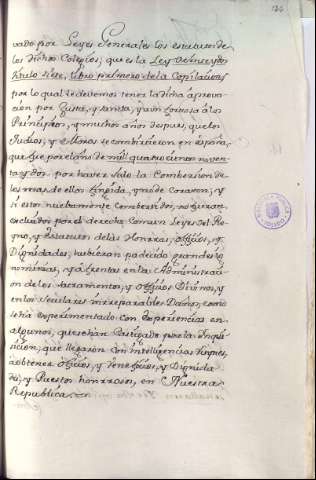 124
vado por Leyes Generales los estatutos de
los dichos Colegios, que es la Ley veinte y dos
titulo siete, libro primero de la Copilacion
por lo qual se devemos tener la dicha aprova-
cion por Justa, y santa, y aun forzosa á los
Principios, y muchos años despues, que los
Judios, y Moros se combirtieron en españa,
que fue por el año de mil quatrocientos noven-
ta y dos por haver sido la Combersion de
los mas de ellos fingida, y no de Corazon, y
si estos nuebamente Combertidos, no fueran
excluidos por el derecho Comun Leyes del Rey-
no, y estatutos de las Honrras, oficios, y
Dignidades, hubieran padecido grandes ig-
nominias, y afrentas en la Administraci-
on de los sacramentos, y oficios Divinos, y
en los seculares irreparables Daños, como
se ha experimentado con experiencias en
algunos, que se han Castigado por la Inqui-
sicion, que llegaron con inteligencias
á obtener oficios, y Beneficios, y Dignida-
des, y Puestos honrrosos, en Nuestra
Republica.